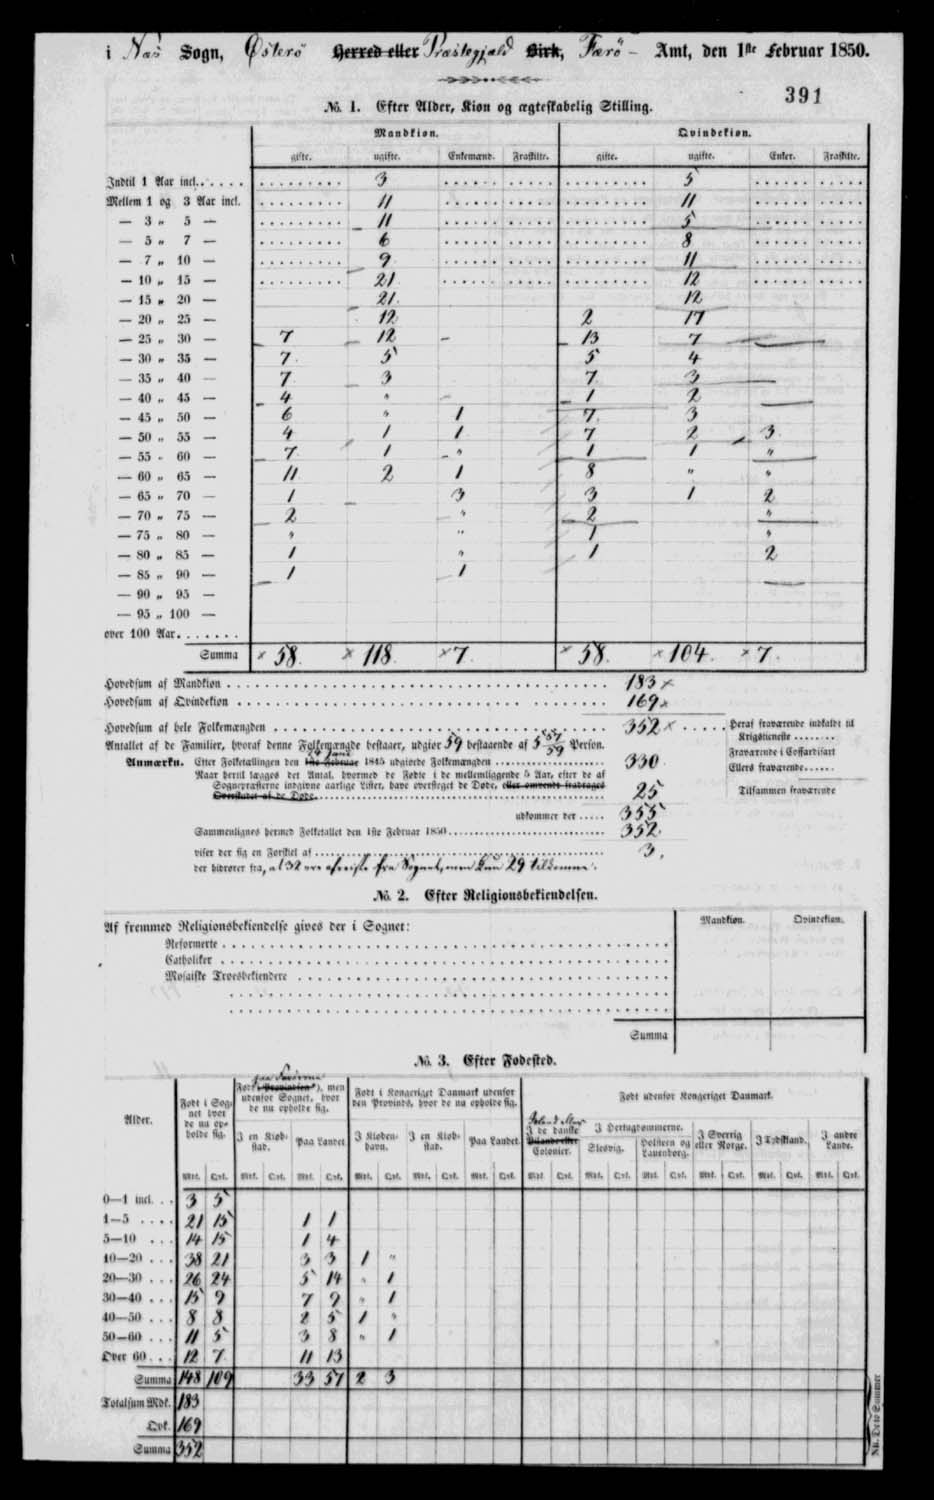 i Næs Sogn, Østerø Herred eller Præstegjæld Birk, Færø – Amt, den 1ste Februar 1850.
391
No. 1. Efter Alder, Kiøn og ægteskabelig Stilling.
Mandkiøn. Qvindekiøn.
gifte. ugifte. Enkemænd. Fraskilte. gifte. ugifte. Enker. Fraskilte.
Indtil 1 Aar incl. 3 5
Mellem 1 og 3 Aar incl. 11 11
— 3 „ 5 — 11 5
— 5 „ 7 — 6 8
— 7 „ 10 — 9 11
— 10 „ 15 — 21 12
— 15 „ 20 — 21 12
— 20 „ 25 — 12 2 17
— 25 „ 30 — 7 12 13 7
— 30 „ 35 — 7 5 5 4
— 35 „ 40 — 7 3 7 3
— 40 „ 45 — 4 „ 1 2
— 45 „ 50 — 6 „ 1 7 3
— 50 „ 55 — 4 1 1 7 2 3
— 55 „ 60 — 7 1 „ 1 1 „
— 60 „ 65 — 11 2 1 8 „ „
— 65 „ 70 — 1 3 3 1 2
— 70 „ 75 — 2 „ 2 „
— 75 „ 80 — „ „ 1 „
— 80 „ 85 — 1 „ 1 2
— 85 „ 90 — 1 1
— 90 „ 95 —
— 95 „ 100 —
over 100 Aar.
Summa × 58. × 118. × 7. × 58. × 104. × 7.
Hovedsum af Mandkiøn 183 ×
Hovedsum af Qvindekiøn 169 ×
Hovedsum af hele Folkemængden 352 × Heraf fraværende indkaldt til Krigstieneste
Antallet af de Familier, hvoraf denne Folkemængde bestaaer, udgiør 59 bestaaende af 5 57/59 Person.
Fraværende i Coffardifart
Anmærkn. Efter Folketællingen den 1ste Februar 1845 udgiorde Folkemængden 330.
Ellers fraværende
Naar hertil lægges det Antal, hvormed de Fødte i de mellemliggende 5 Aar, efter de af
Sognepræsterne indgivne aarlige Lister, have oversteget de Døde, eller omvendt fradrages
Overskudet af de Døde 25
Tilsammen fraværende
udkommer der 355
Sammenlignes hermed Folketallet den 1ste Februar 1850 352.
viser der sig en Forskiel af 3.
der hidrører fra, at 32 ere afreiste fra Sognet, men kun 29 tilkomne.
No. 2. Efter Religionsbekiendelsen.
Mandkiøn. Qvindekiøn.
Af fremmed Religionsbekiendelse gives der i Sognet:
Reformerte
Catholiker
Mosaiske Troesbekiendere
Summa
No. 3. Efter Fødested.
Alder.
Født i Sognet hvor de nu opholde sig.
paa Færøerne
Født i Provindsen, men udenfor Sognet, hvor de nu opholde sig.
Født i Kongeriget Danmark udenfor den Provinds, hvor de nu opholde sig.
Født udenfor Kongeriget Danmark.
I en Kiøbstad. Paa Landet. I Kiøbenhavn. I en Kiøbstad. Paa Landet. I de danske Bilande eller Colonier. I Hertugdømmerne. Slesvig. Holsteen og Lauenborg. I Sverrig eller Norge. I Tydskland. I andre Lande.
Mdk. Qvk. Mdk. Qvk. Mdk. Qvk. Mdk. Qvk. Mdk. Qvk. Mdk. Qvk. Mdk. Qvk. Mdk. Qvk. Mdk. Qvk. Mdk. Qvk. Mdk. Qvk. Mdk. Qvk.
0—1 incl. 3 5
1—5 21 15 1 1
5—10 14 15 1 4
10—20 38 21 3 3 1 „
20—30 26 24 5 14 „ 1
30—40 15 9 7 9 „ 1
40—50 8 8 2 5 1 „
50—60 11 5 3 8 „ 1
Over 60 12 7 11 13
Summa 148 109 33 57 2 3
Totalsum Mdk. 183
Qvk. 169
Summa 352
NB. De to Summer